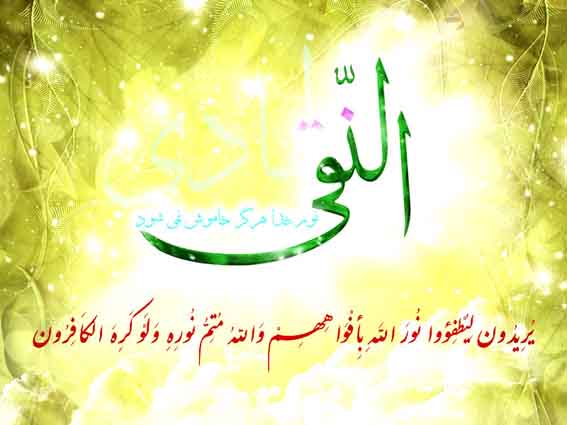 الهادی
النّقی
نور خدا هرگز خاموش نمی شود
يُرِيدُون لِيُطْفِؤُوا نُورَ اللَّهِ بِأَفْوَاهِهِمْ وَاللَّهُ مُتِمُّ نُورِهِ وَلَوْ كَرِهَ الْكَافِرُون